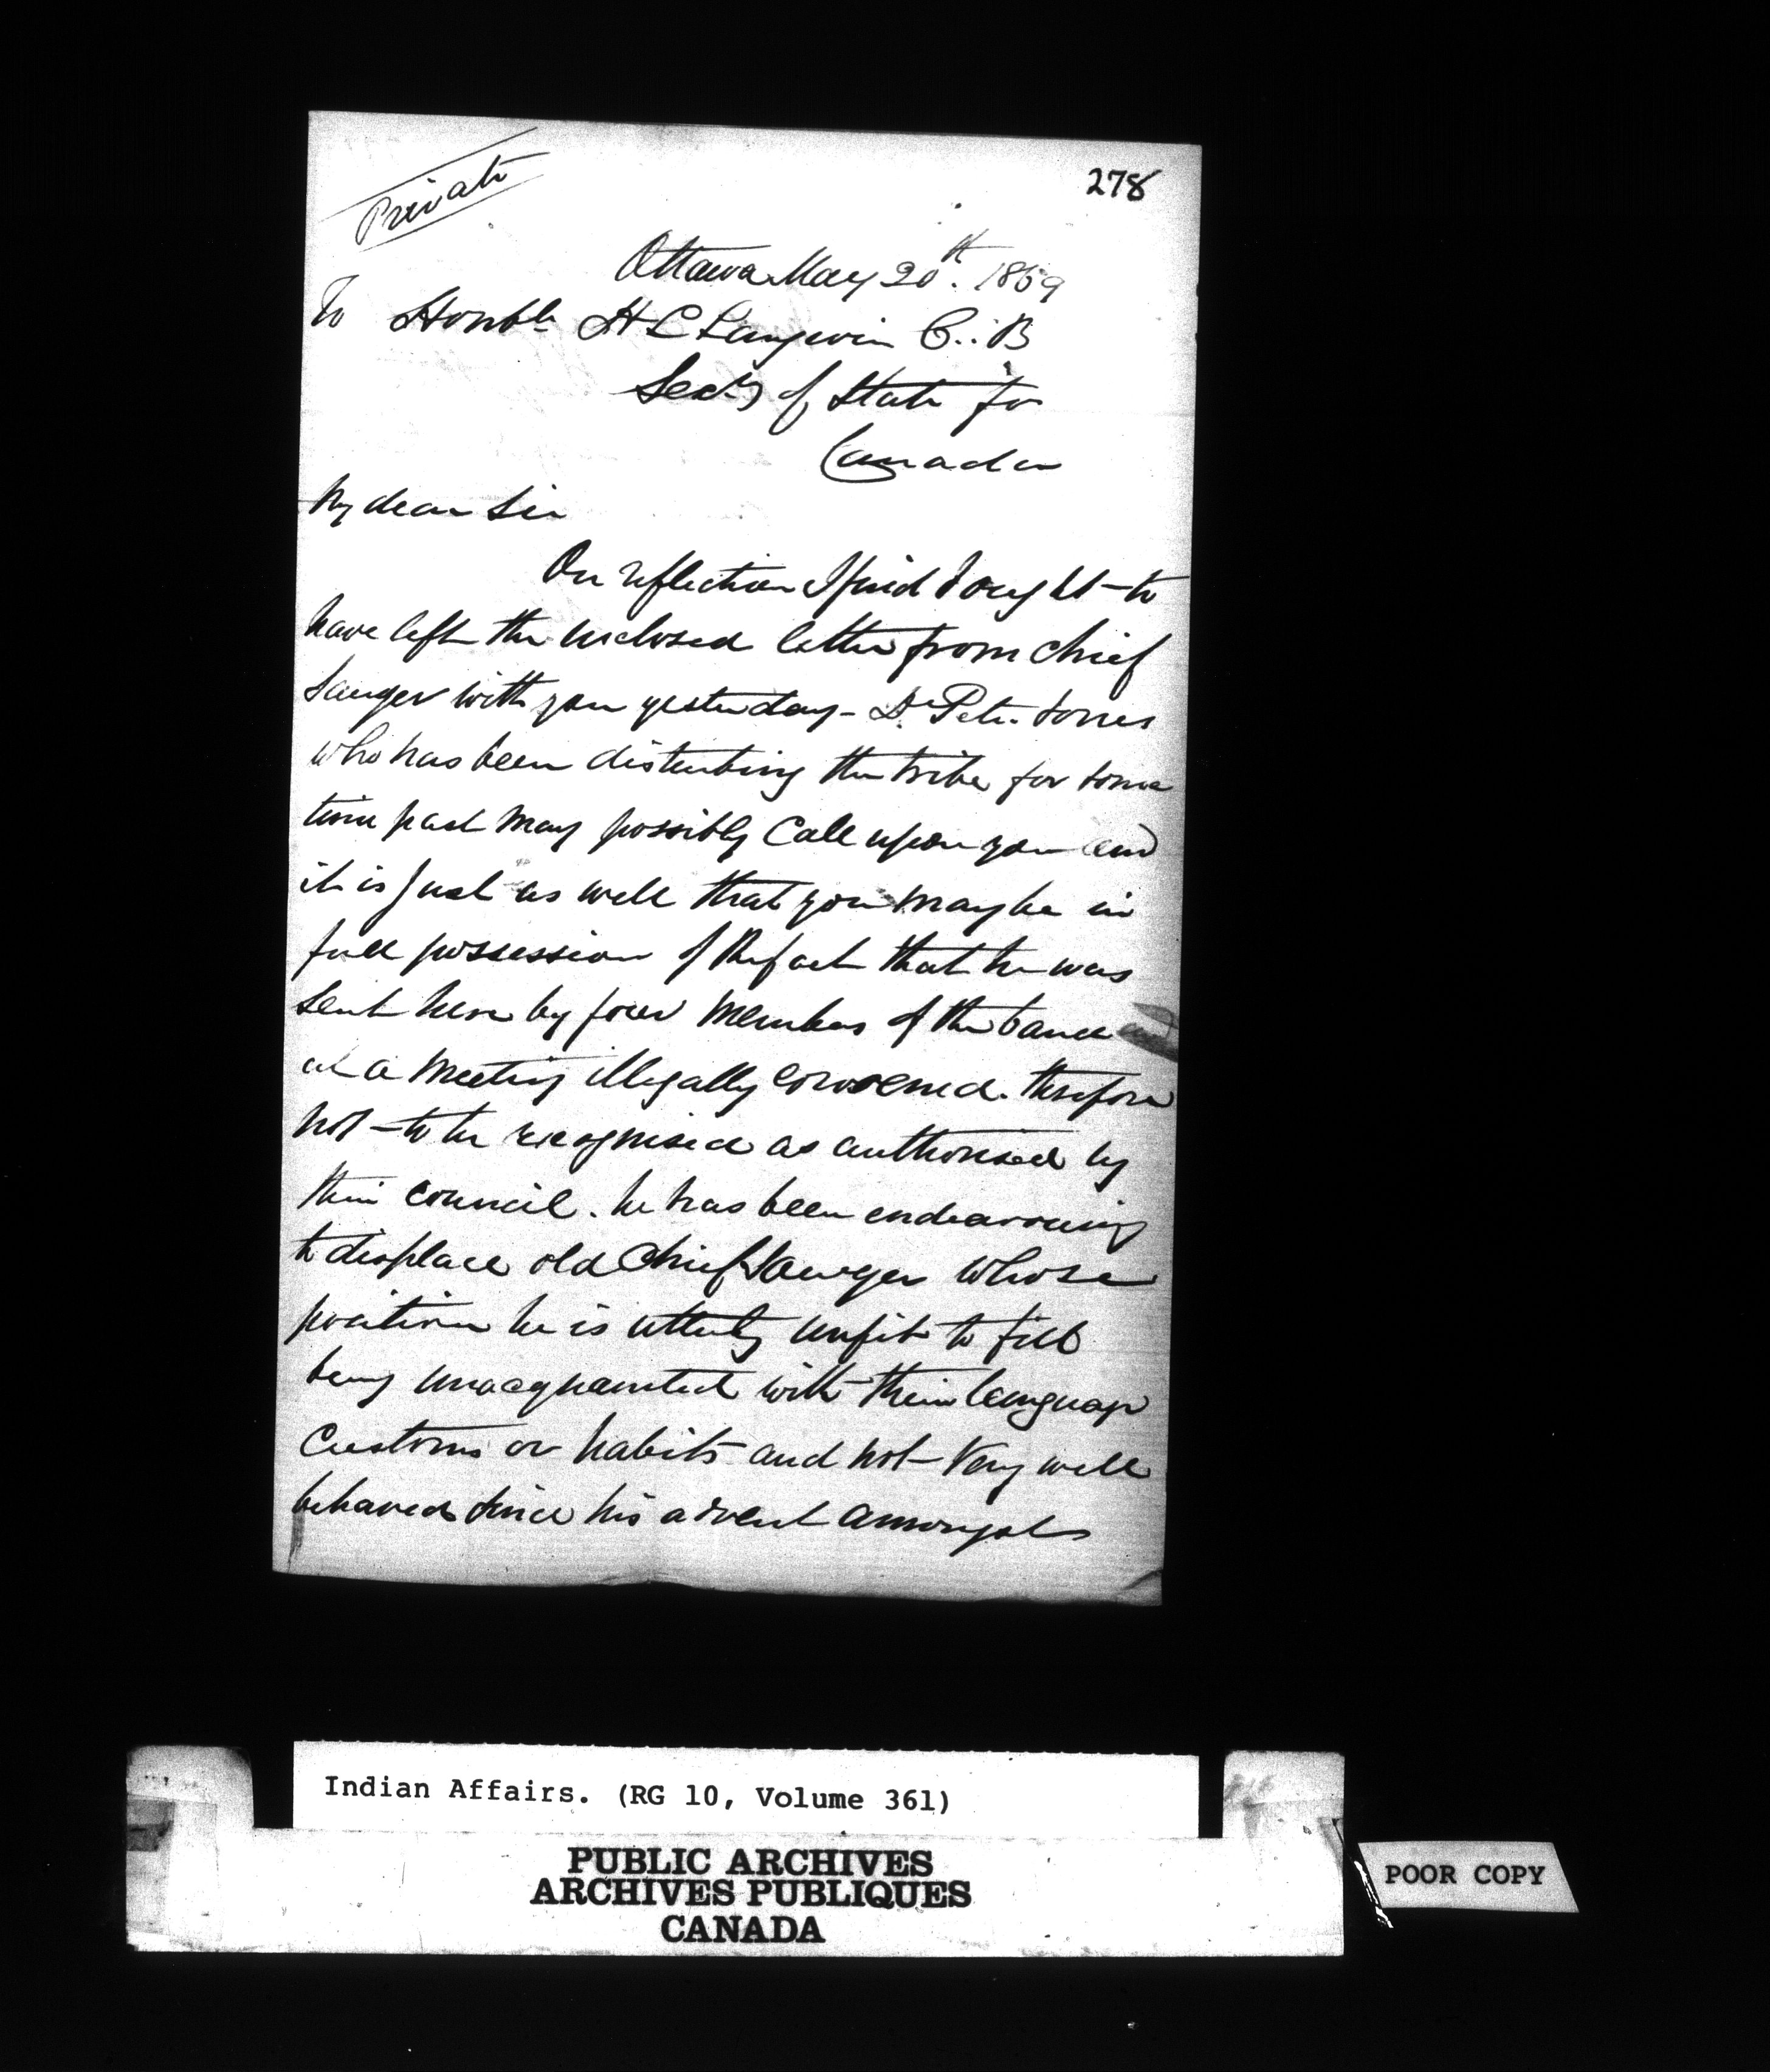 Private
278
Ottawa May 20th. 1869
To Honble H L Langevin C..B
Secy of State for
Canada
My dear Sir
On reflection I find I ought to
have left the inclosed letter from Chief
Sawyer with you yesterday - Dr Peter Jones
who has been disturbing the tribe for some
time past may possibly Call upon you and
it is just as well that you may be in
full possession of the fact that he was
sent here by four members of the band
at a meeting illegally convened. therefore
not to be recognised as authorised by
their council. he has been endeavouring
to displace old Chief Sawyer whose
position he is utterly unfit to fill
being unacquainted with their language
Customs or habits and not very well
behaved since his advent amongst
Indian Affairs. (RG 10, Volume 361)
PUBLIC ARCHIVES
ARCHIVES PUBLIQUES
CANADA
POOR COPY